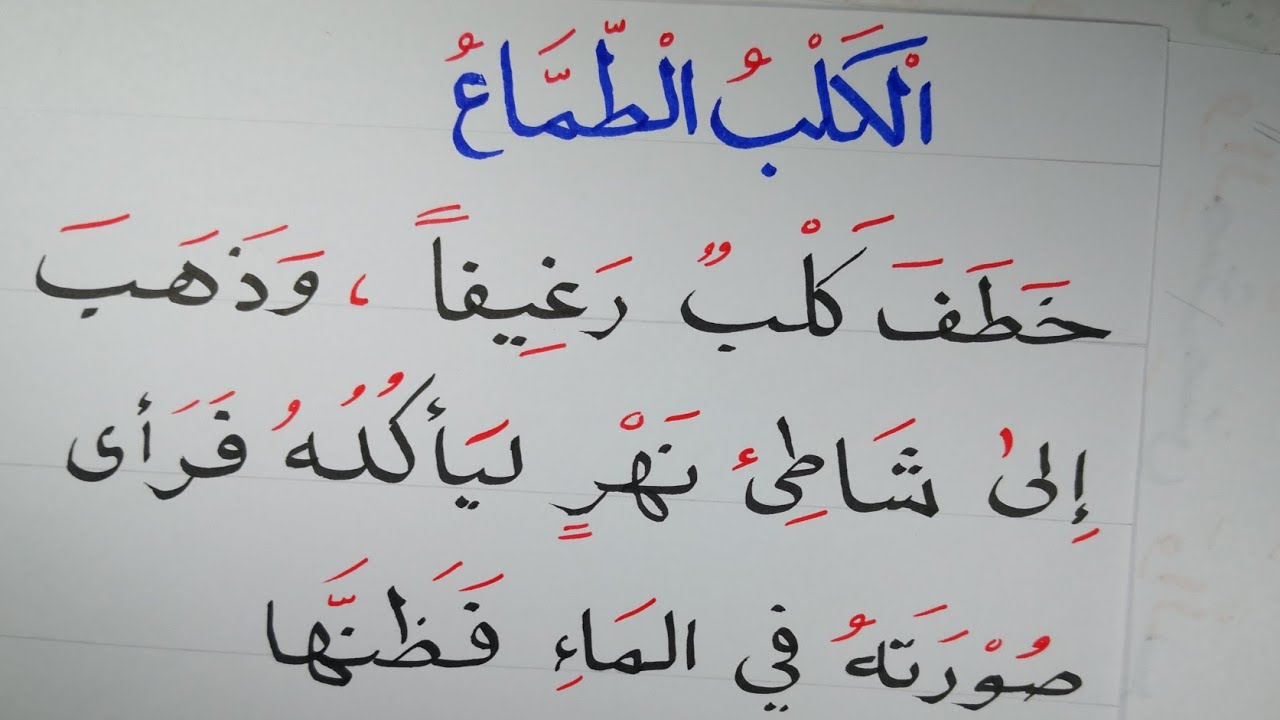 الْكَلْبُ الْطَّمَّاعُ
خَطَفَ كَلْبٌ رَغِيفاً ، وَذَهَبَ
إِلىٰ شَاطِئِ نَهْرٍ ليَأكُلُهُ فَرَأى
صُوْرَتَهُ في المَاءِ فَظَنَّها